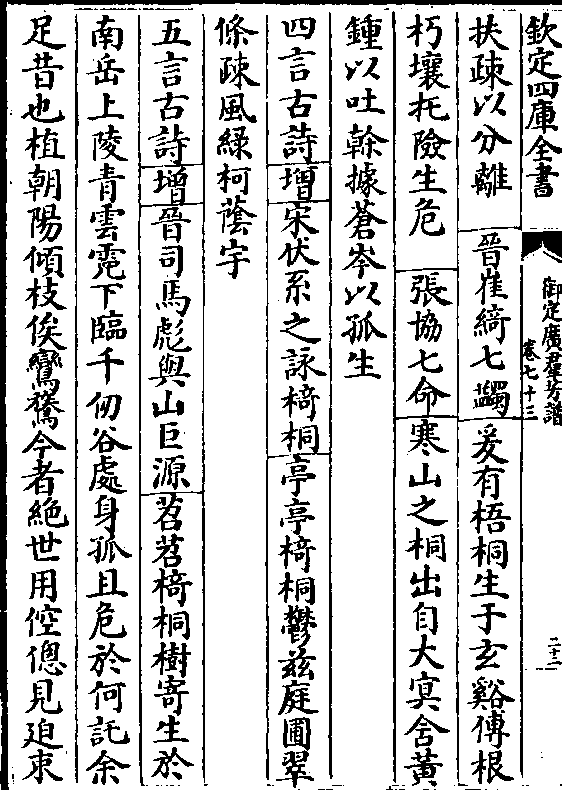 欽定四庫全書
御定廣羣芳譜
卷七十三
二十二
扶疎以分離　晉崔綺七蠲爰有梧桐生于玄谿傅根
朽壤托險生危　張協七命寒山之桐出自大㝠含黄
鍾以吐幹據蒼岑以孤生
四言古詩增宋伏系之詠椅桐亭亭椅桐鬱兹庭圃翠
條疎風綠柯蔭宇
五言古詩增晉司馬彪與山巨源苕苕椅桐樹寄生於
南岳上陵青雲霓下臨千仞谷處身孤且危於何託余
足昔也植朝陽傾枝俟鸞鷟今者絶世用倥傯見迫束